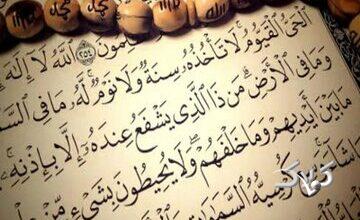 الله
محمد
ـلمون ٢٥٤ ٱللَّهُ لَآ إِلَٰهَ
ٱلْحَىُّ ٱلْقَيُّومُ لَا تَأْخُذُهُۥ سِنَةٌ وَلَا نَوْمٌ لَّهُۥ مَا فِى ٱلسَّـ
وَمَا فِى ٱلْأَرْضِ مَن ذَا ٱلَّذِى يَشْفَعُ عِندَهُۥٓ إِلَّا بِإِذْنِهِۦ
مَا بَيْنَ أَيْدِيهِمْ وَمَا خَلْفَهُمْ وَلَا يُحِيطُونَ بِشَىْءٍ مِّنْ
ٱلسَّمَٰوَٰ